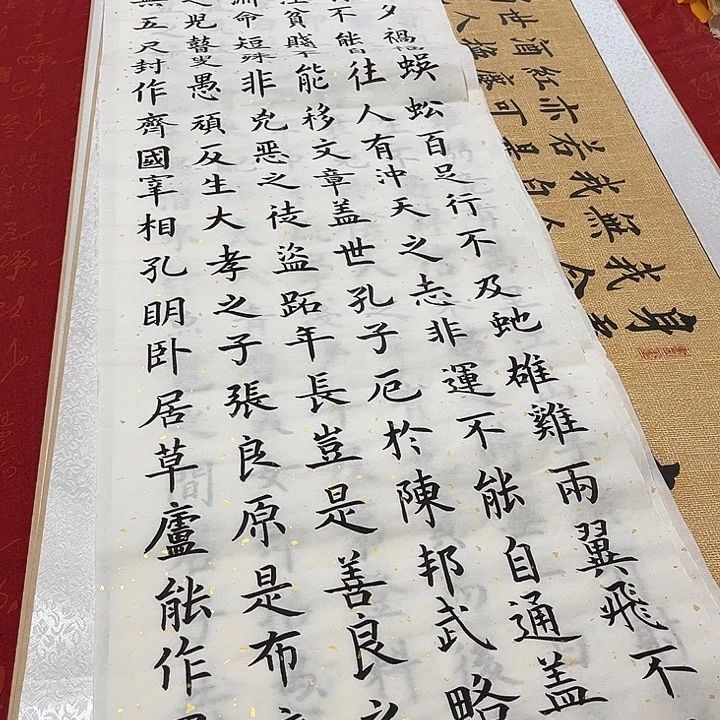 夕禍蜈蚣百足行不及虵雄雞兩翼飛不
不能往人有冲天之志非運不能自通蓋
貧賤不能移文章蓋世孔子厄於陳邦武略
命短殊非兇惡之徒盜跖年長豈是善良之
之兒瞽叟愚頑反生大孝之子張良原是布
五尺封作齊國宰相孔明卧居草廬能作
紅亦若我無我身
可是自人